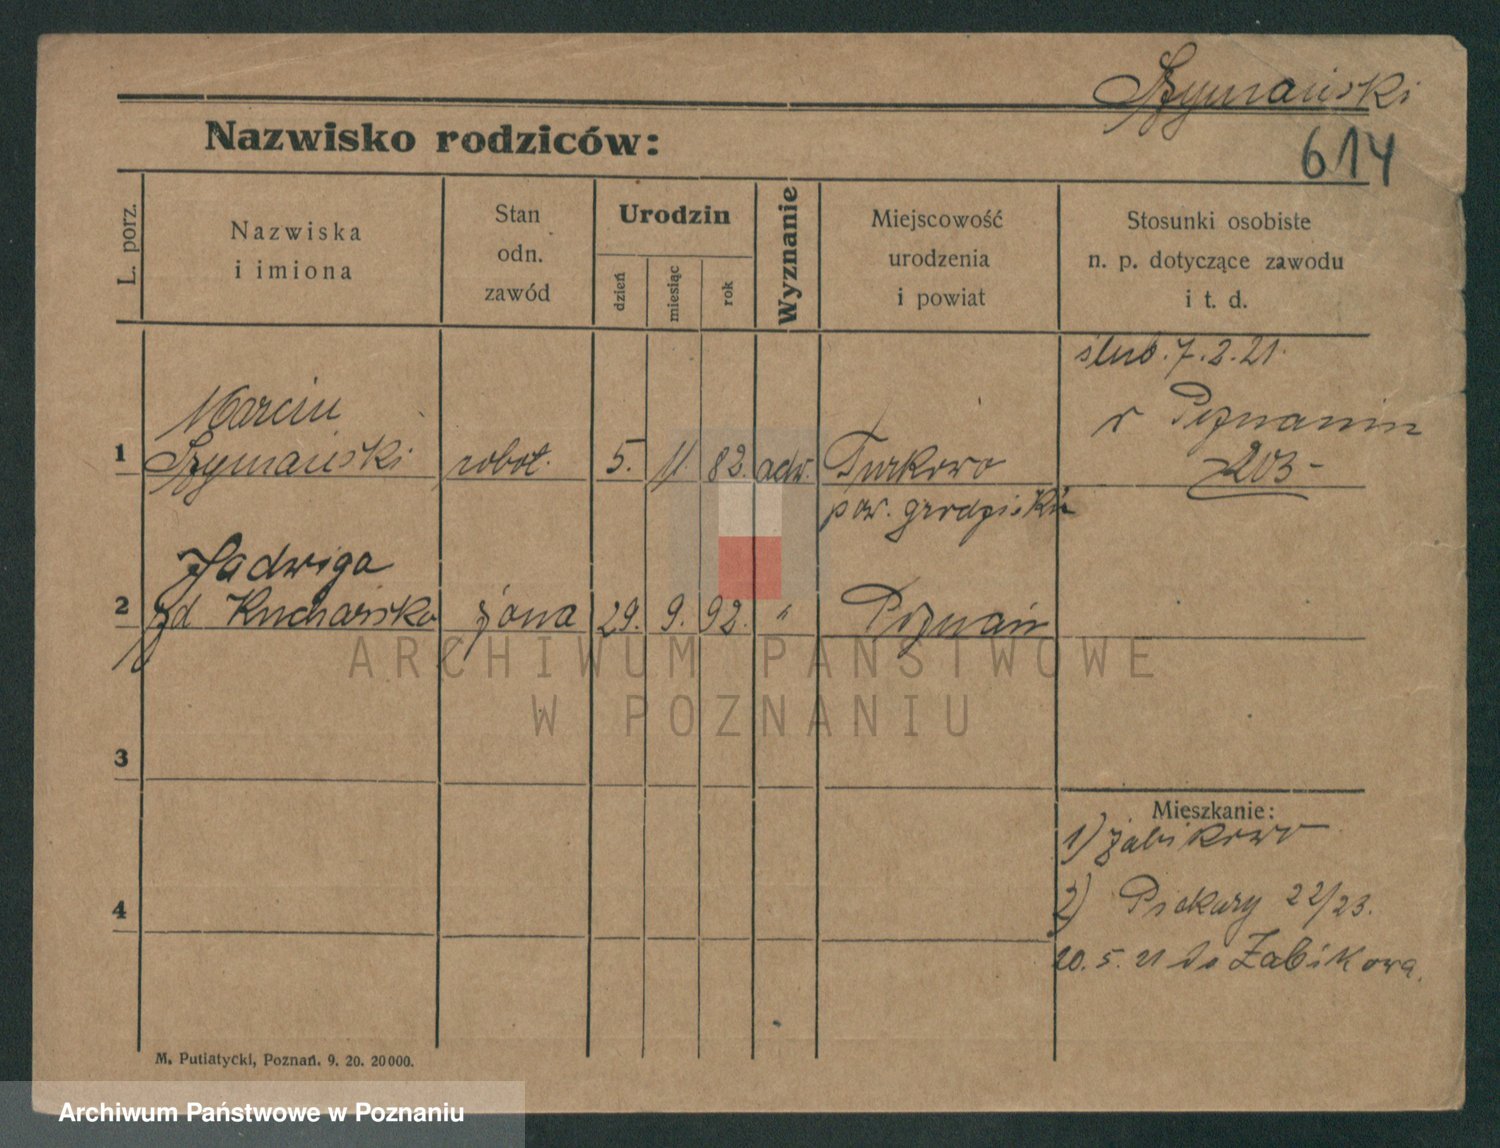 Szymański
614
Nazwisko rodziców:
L. porz.
Nazwiska
i imiona
Stan
odn.
zawód
Urodzin
dzień
miesiąc
rok
Wyznanie
Miejscowość
urodzenia
i powiat
Stosunki osobiste
n. p. dotyczące zawodu
i t. d.
ślub. 7.2.21.
w Poznaniu
203-
Marcin
1 Szymański robot. 5. 11. 82. Turkowo
pow. grodziski
Jadwiga
2 zd Kucharska żona 29. 9. 92. " Poznań
3
Mieszkanie:
1) Żabikowo
4
2) Piekary 22/23.
20.5.21 do Żabikowa.
M. Putiatycki, Poznań. 9. 20. 20000.
ARCHIWUM PAŃSTWOWE
W POZNANIU
Archiwum Państwowe w Poznaniu